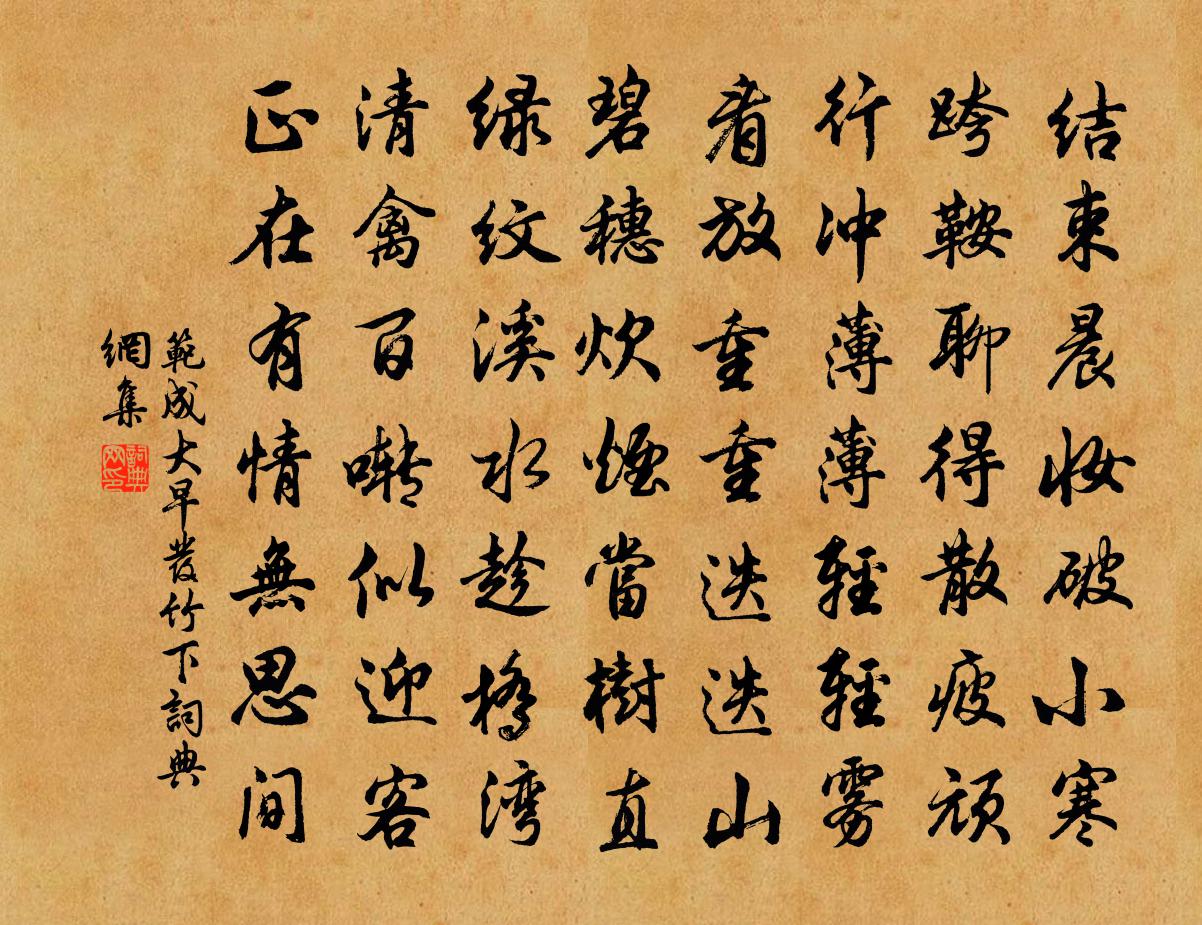 结束晨妆破小寒
跨鞍聊得散疲顽
行冲薄薄轻轻雾
看放重重迭迭山
碧穗炊烟當樹直
绿纹溪水趁橋湾
清禽百啭似迎客
正在有情無思间
範成大早發竹下詞典
網集
詞典
网印